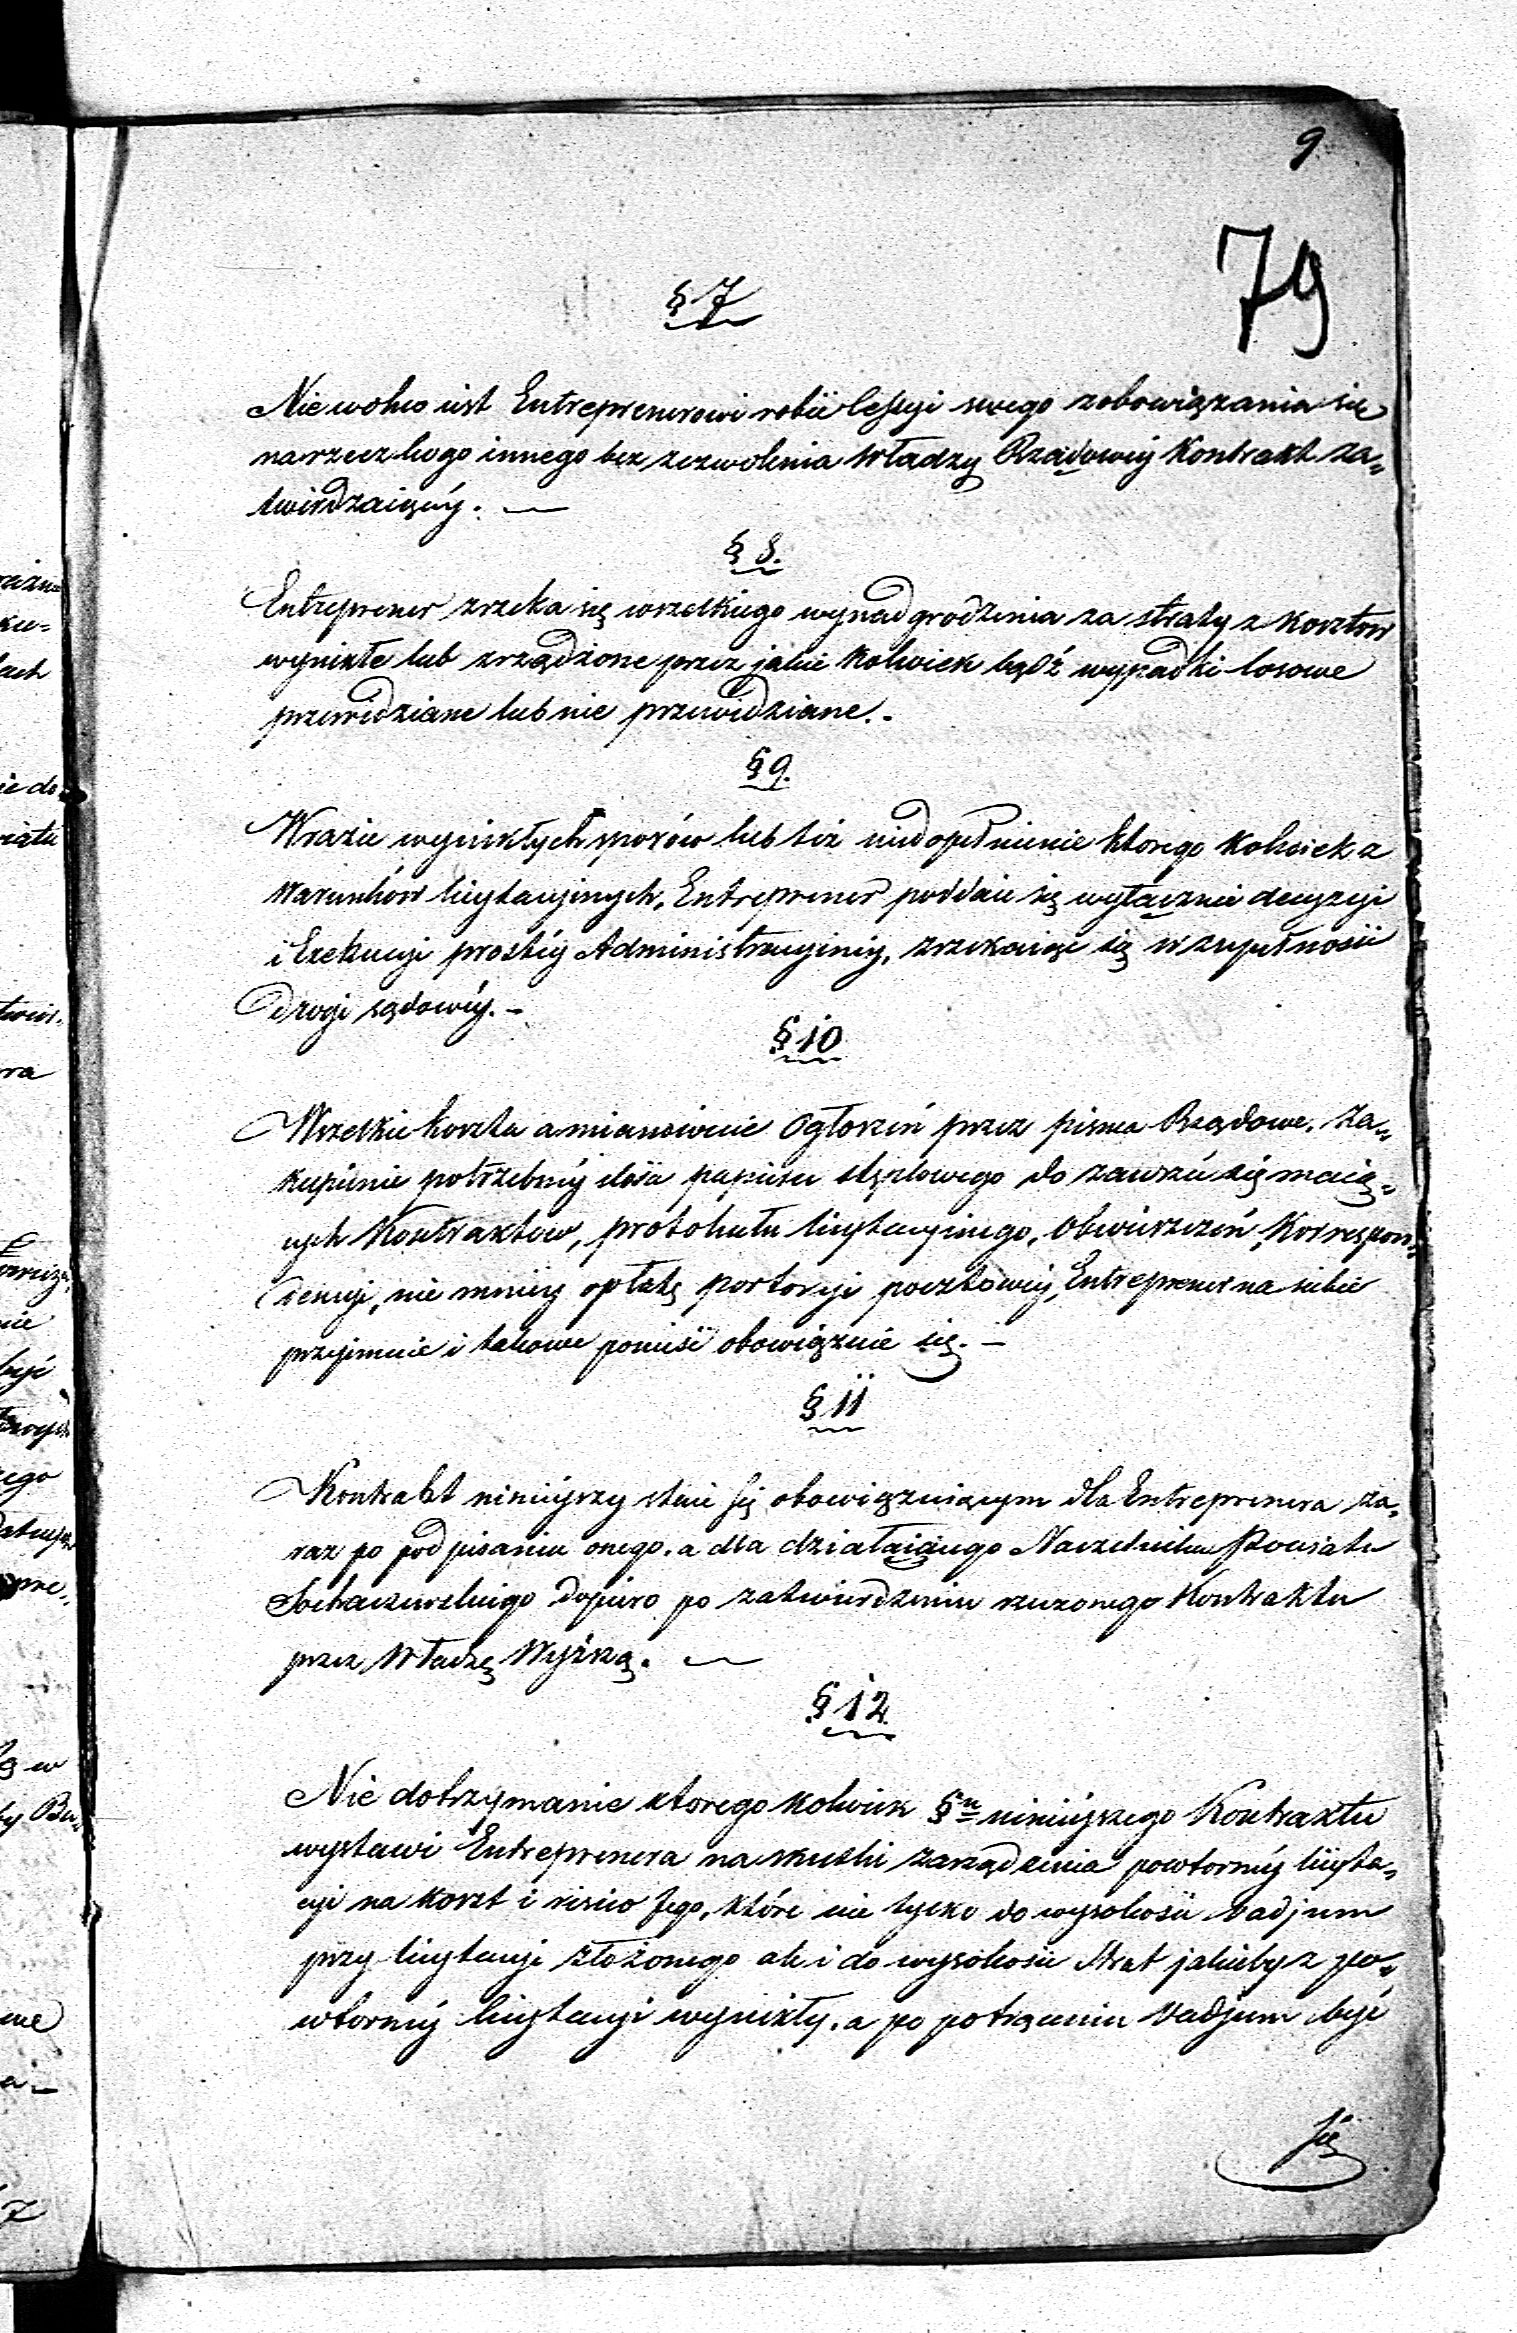 9
79
§ 7
Nie wolno iest Entreprenerowi robić Cessyi swego zobowiązania się
na rzecz kogo innego bez zezwolenia Władzy Rządowéy Kontrakt za„
twierdzaiącéy. —
§ 8.
Entreprener zrzeka się wszelkiego wynadgrodzenia za straty z kosztów
wynikłe lub zrządzone przez jakie kolwiek bądź wypadki losowe
przewidziane lub nie przewidziane. -
§ 9.
W razie wynikłych sporów lub też niedopełnienie którego kolwiek z
Warunków licytacyjnych, Entreprener poddaie się wyłącznie decyzyi
i Exekucyi prostéy Administracyinéy, zrzekaiąc się w zupełności
drogi sądowéy. -
§ 10
Wszelkie koszta a mianowicie Ogłoszeń przez pisma Rządowe, Za„
kupienie potrzebnéy ilości papieru stęplowego do zawrzéć się maią„
cych Kontraktów, protokułu licytacyinego, Obwieszczeń, Korrespon„
dencyi, nie mniéy opłatę portoryi pocztowéy, Entreprener na siebie
przyimuie i takowe ponieść obowiązuie się. -
§ 11
Kontrakt ninieyszy staie się obowiązuiącym dla Entreprenera za„
raz po podpisaniu onego, a dla działaiącego Naczelnika Powiatu
Sochaczewskiego dopiero po zatwierdzeniu rzeczonego Kontraktu
przez Władzę Wyższą. —
§ 12
Nie dotrzymanie którego kolwiek §u ninieyszego Kontraktu
wystawi Entreprenera na skutki zarządzenia powtornéy licyta„
cyi na koszt i risico Jego, które nie tylko do wysokości Vadjum
przy licytacyi złożonego ale i do wysokości strat jakieby z po„
wtornéy licytacyi wynikły, a po potrąceniu Vadjum być
się